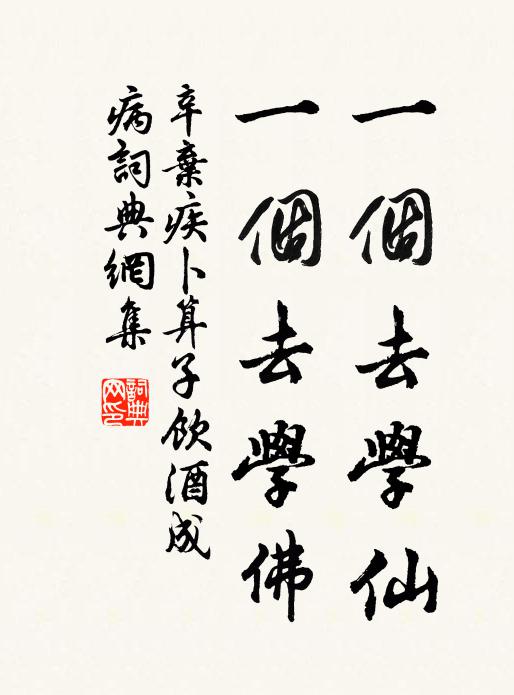 一個去學仙
一個去學佛
辛棄疾卜算子飲酒成
病詞典網集
詞典
网印